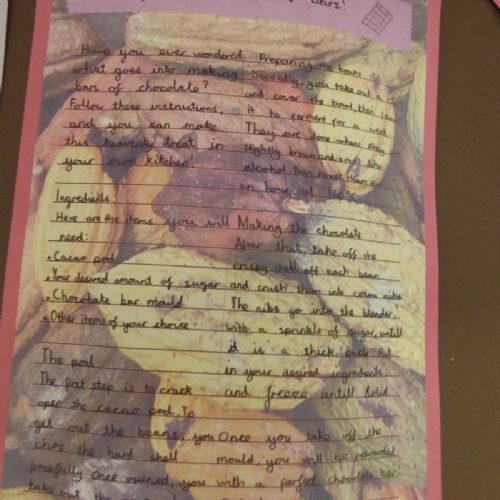 Bars!
Have you ever wondered
what goes into making
bars of chocolate?
Follow these instructions,
and you can make
this heavenly treat in
your own kitchen!
Ingredients:
Here are the items you will
need:
• Cacao pod
• Your desired amount of sugar
• Chocolate bar mould
• Other items of your choice
The pod
The first step is to crack
open the cacao pod. To
get out the beans, you
chop the hard shell
forcefully. Once opened, you
take out the
Preparing the beans
Secondly, you take out a
and cover the bowl, then
it to ferment for a week
They are done when they
slightly brown and smell like
alcohol. Then roast them
an hour at
Making the chocolate
After that, take off the
crispy shell off each bean
and crush them into cocoa nibs
The nibs go into the blender,
with a sprinkle of sugar, untill
it is a thick, paste. Put
in your desired ingredients
and freeze untill solid
Once you take off the
mould, you will be rewarded
with a perfect chocolate bar